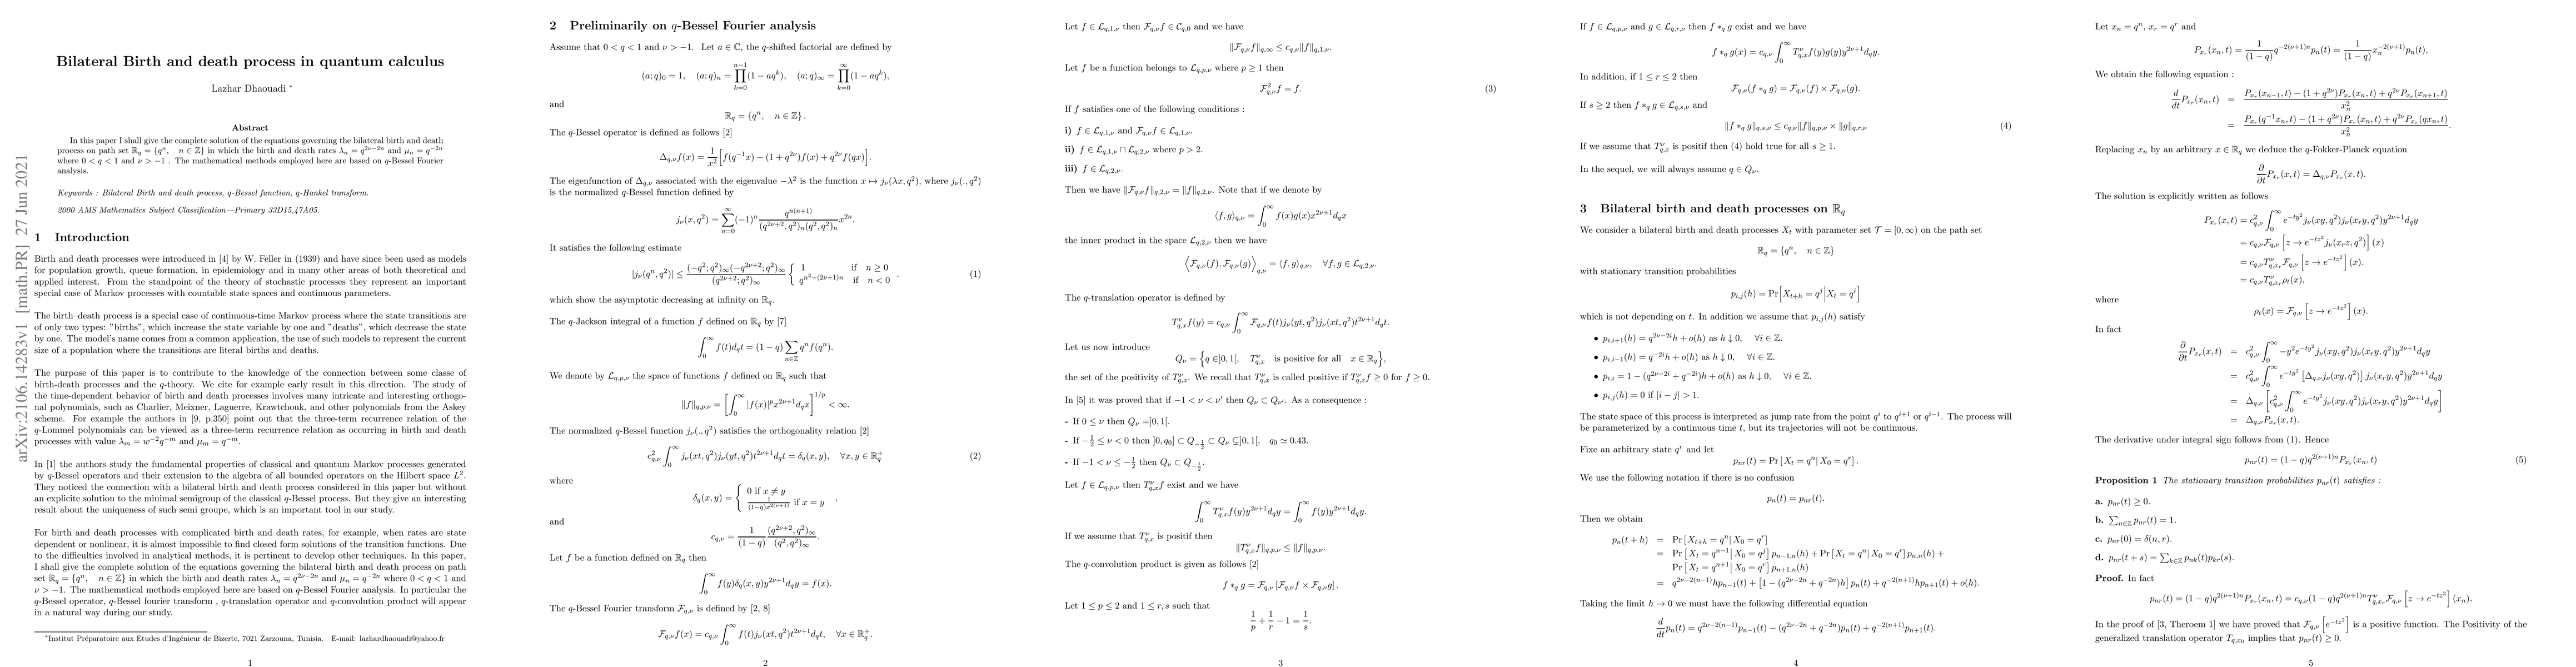 arXiv:2106.14283v1 [math.PR] 27 Jun 2021
Bilateral Birth and death process in quantum calculus
Lazhar Dhaouadi *
Abstract
In this paper I shall give the complete solution of the equations governing the bilateral birth and death
process on path set ℝ_q = {q^n, n ∈ ℤ} in which the birth and death rates λ_n = q^{2ν−2n} and μ_n = q^{−2n}
where 0 < q < 1 and ν > −1 . The mathematical methods employed here are based on q-Bessel Fourier
analysis.
Keywords : Bilateral Birth and death process, q-Bessel function, q-Hankel transform.
2000 AMS Mathematics Subject Classification—Primary 33D15,47A05.
1 Introduction
Birth and death processes were introduced in [4] by W. Feller in (1939) and have since been used as models
for population growth, queue formation, in epidemiology and in many other areas of both theoretical and
applied interest. From the standpoint of the theory of stochastic processes they represent an important
special case of Markov processes with countable state spaces and continuous parameters.
The birth–death process is a special case of continuous-time Markov process where the state transitions are
of only two types: "births", which increase the state variable by one and "deaths", which decrease the state
by one. The model's name comes from a common application, the use of such models to represent the current
size of a population where the transitions are literal births and deaths.
The purpose of this paper is to contribute to the knowledge of the connection between some classe of
birth-death processes and the q-theory. We cite for example early result in this direction. The study of
the time-dependent behavior of birth and death processes involves many intricate and interesting orthogo-
nal polynomials, such as Charlier, Meixner, Laguerre, Krawtchouk, and other polynomials from the Askey
scheme. For example the authors in [9, p.350] point out that the three-term recurrence relation of the
q-Lommel polynomials can be viewed as a three-term recurrence relation as occurring in birth and death
processes with value λ_m = w^{−2}q^{−m} and μ_m = q^{−m}.
In [1] the authors study the fundamental properties of classical and quantum Markov processes generated
by q-Bessel operators and their extension to the algebra of all bounded operators on the Hilbert space L^2.
They noticed the connection with a bilateral birth and death process considered in this paper but without
an explicite solution to the minimal semigroup of the classical q-Bessel process. But they give an interesting
result about the uniqueness of such semi groupe, which is an important tool in our study.
For birth and death processes with complicated birth and death rates, for example, when rates are state
dependent or nonlinear, it is almost impossible to find closed form solutions of the transition functions. Due
to the difficulties involved in analytical methods, it is pertinent to develop other techniques. In this paper,
I shall give the complete solution of the equations governing the bilateral birth and death process on path
set ℝ_q = {q^n, n ∈ ℤ} in which the birth and death rates λ_n = q^{2ν−2n} and μ_n = q^{−2n} where 0 < q < 1 and
ν > −1. The mathematical methods employed here are based on q-Bessel Fourier analysis. In particular the
q-Bessel operator, q-Bessel fourier transform , q-translation operator and q-convolution product will appear
in a natural way during our study.
*Institut Préparatoire aux Etudes d'Ingénieur de Bizerte, 7021 Zarzouna, Tunisia. E-mail: lazhardhaouadi@yahoo.fr
1
2 Preliminarily on q-Bessel Fourier analysis
Assume that 0 < q < 1 and ν > −1. Let a ∈ ℂ, the q-shifted factorial are defined by
(a; q)_0 = 1, (a; q)_n = ∏_{k=0}^{n−1}(1 − aq^k), (a; q)_∞ = ∏_{k=0}^{∞}(1 − aq^k),
and
ℝ_q = {q^n, n ∈ ℤ} .
The q-Bessel operator is defined as follows [2]
Δ_{q,ν}f(x) = 1/x^2 [f(q^{−1}x) − (1 + q^{2ν})f(x) + q^{2ν}f(qx)].
The eigenfunction of Δ_{q,ν} associated with the eigenvalue −λ^2 is the function x ↦ j_ν(λx, q^2), where j_ν(., q^2)
is the normalized q-Bessel function defined by
j_ν(x, q^2) = ∑_{n=0}^{∞}(−1)^n q^{n(n+1)}/((q^{2ν+2}, q^2)_n(q^2, q^2)_n) x^{2n}.
It satisfies the following estimate
|j_ν(q^n, q^2)| ≤ (−q^2; q^2)_∞(−q^{2ν+2}; q^2)_∞/(q^{2ν+2}; q^2)_∞ { 1 if n ≥ 0 ; q^{n^2−(2ν+1)n} if n < 0 . (1)
which show the asymptotic decreasing at infinity on ℝ_q.
The q-Jackson integral of a function f defined on ℝ_q by [7]
∫_0^∞ f(t)d_qt = (1 − q) ∑_{n∈ℤ} q^n f(q^n).
We denote by 𝓛_{q,p,ν} the space of functions f defined on ℝ_q such that
‖f‖_{q,p,ν} = [∫_0^∞ |f(x)|^p x^{2ν+1}d_qx]^{1/p} < ∞.
The normalized q-Bessel function j_ν(., q^2) satisfies the orthogonality relation [2]
c^2_{q,ν} ∫_0^∞ j_ν(xt, q^2)j_ν(yt, q^2)t^{2ν+1}d_qt = δ_q(x, y), ∀x, y ∈ ℝ_q^+ (2)
where
δ_q(x, y) = { 0 if x ≠ y ; 1/((1−q)x^{2(ν+1)}) if x = y ,
and
c_{q,ν} = 1/(1 − q) (q^{2ν+2}, q^2)_∞/(q^2, q^2)_∞.
Let f be a function defined on ℝ_q then
∫_0^∞ f(y)δ_q(x, y)y^{2ν+1}d_qy = f(x).
The q-Bessel Fourier transform 𝓕_{q,ν} is defined by [2, 8]
𝓕_{q,ν}f(x) = c_{q,ν} ∫_0^∞ f(t)j_ν(xt, q^2)t^{2ν+1}d_qt, ∀x ∈ ℝ_q^+.
2
Let f ∈ 𝓛_{q,1,ν} then 𝓕_{q,ν}f ∈ 𝓒_{q,0} and we have
‖𝓕_{q,ν}f‖_{q,∞} ≤ c_{q,ν}‖f‖_{q,1,ν}.
Let f be a function belongs to 𝓛_{q,p,ν} where p ≥ 1 then
𝓕^2_{q,ν}f = f. (3)
If f satisfies one of the following conditions :
i) f ∈ 𝓛_{q,1,ν} and 𝓕_{q,ν}f ∈ 𝓛_{q,1,ν}.
ii) f ∈ 𝓛_{q,1,ν} ∩ 𝓛_{q,2,ν} where p > 2.
iii) f ∈ 𝓛_{q,2,ν}.
Then we have ‖𝓕_{q,ν}f‖_{q,2,ν} = ‖f‖_{q,2,ν}. Note that if we denote by
⟨f, g⟩_{q,ν} = ∫_0^∞ f(x)g(x)x^{2ν+1}d_qx
the inner product in the space 𝓛_{q,2,ν} then we have
⟨𝓕_{q,ν}(f), 𝓕_{q,ν}(g)⟩_{q,ν} = ⟨f, g⟩_{q,ν}, ∀f, g ∈ 𝓛_{q,2,ν}.
The q-translation operator is defined by
T^ν_{q,x}f(y) = c_{q,ν} ∫_0^∞ 𝓕_{q,ν}f(t)j_ν(yt, q^2)j_ν(xt, q^2)t^{2ν+1}d_qt.
Let us now introduce
Q_ν = {q ∈]0, 1[, T^ν_{q,x} is positive for all x ∈ ℝ_q},
the set of the positivity of T^ν_{q,x}. We recall that T^ν_{q,x} is called positive if T^ν_{q,x}f ≥ 0 for f ≥ 0.
In [5] it was proved that if −1 < ν < ν′ then Q_ν ⊂ Q_{ν′}. As a consequence :
- If 0 ≤ ν then Q_ν =]0, 1[.
- If −1/2 ≤ ν < 0 then ]0, q_0] ⊂ Q_{−1/2} ⊂ Q_ν ⊊]0, 1[, q_0 ≃ 0.43.
- If −1 < ν ≤ −1/2 then Q_ν ⊂ Q_{−1/2}.
Let f ∈ 𝓛_{q,p,ν} then T^ν_{q,x}f exist and we have
∫_0^∞ T^ν_{q,x}f(y)y^{2ν+1}d_qy = ∫_0^∞ f(y)y^{2ν+1}d_qy.
If we assume that T^ν_{q,x} is positif then
‖T^ν_{q,x}f‖_{q,p,ν} ≤ ‖f‖_{q,p,ν}.
The q-convolution product is given as follows [2]
f ∗_q g = 𝓕_{q,ν} [𝓕_{q,ν}f × 𝓕_{q,ν}g] .
Let 1 ≤ p ≤ 2 and 1 ≤ r, s such that
1/p + 1/r − 1 = 1/s.
3
If f ∈ 𝓛_{q,p,ν} and g ∈ 𝓛_{q,r,ν} then f ∗_q g exist and we have
f ∗_q g(x) = c_{q,ν} ∫_0^∞ T^ν_{q,x}f(y)g(y)y^{2ν+1}d_qy.
In addition, if 1 ≤ r ≤ 2 then
𝓕_{q,ν}(f ∗_q g) = 𝓕_{q,ν}(f) × 𝓕_{q,ν}(g).
If s ≥ 2 then f ∗_q g ∈ 𝓛_{q,s,ν} and
‖f ∗_q g‖_{q,s,ν} ≤ c_{q,ν}‖f‖_{q,p,ν} × ‖g‖_{q,r,ν} (4)
If we assume that T^ν_{q,x} is positif then (4) hold true for all s ≥ 1.
In the sequel, we will always assume q ∈ Q_ν.
3 Bilateral birth and death processes on ℝ_q
We consider a bilateral birth and death processes X_t with parameter set 𝒯 = [0, ∞) on the path set
ℝ_q = {q^n, n ∈ ℤ}
with stationary transition probabilities
p_{i,j}(h) = Pr[X_{t+h} = q^j|X_t = q^i]
which is not depending on t. In addition we assume that p_{i,j}(h) satisfy
• p_{i,i+1}(h) = q^{2ν−2i}h + o(h) as h ↓ 0, ∀i ∈ ℤ.
• p_{i,i−1}(h) = q^{−2i}h + o(h) as h ↓ 0, ∀i ∈ ℤ.
• p_{i,i} = 1 − (q^{2ν−2i} + q^{−2i})h + o(h) as h ↓ 0, ∀i ∈ ℤ.
• p_{i,j}(h) = 0 if |i − j| > 1.
The state space of this process is interpreted as jump rate from the point q^i to q^{i+1} or q^{i−1}. The process will
be parameterized by a continuous time t, but its trajectories will not be continuous.
Fixe an arbitrary state q^r and let
p_{nr}(t) = Pr [X_t = q^n| X_0 = q^r] .
We use the following notation if there is no confusion
p_n(t) = p_{nr}(t).
Then we obtain
p_n(t + h) = Pr [X_{t+h} = q^n| X_0 = q^r]
= Pr [X_t = q^{n−1}| X_0 = q^j] p_{n−1,n}(h) + Pr [X_t = q^n| X_0 = q^r] p_{n,n}(h) +
Pr [X_t = q^{n+1}| X_0 = q^r] p_{n+1,n}(h)
= q^{2ν−2(n−1)}hp_{n−1}(t) + [1 − (q^{2ν−2n} + q^{−2n})h] p_n(t) + q^{−2(n+1)}hp_{n+1}(t) + o(h).
Taking the limit h → 0 we must have the following differential equation
d/dt p_n(t) = q^{2ν−2(n−1)}p_{n−1}(t) − (q^{2ν−2n} + q^{−2n})p_n(t) + q^{−2(n+1)}p_{n+1}(t).
4
Let x_n = q^n, x_r = q^r and
P_{x_r}(x_n, t) = 1/(1 − q) q^{−2(ν+1)n}p_n(t) = 1/(1 − q) x_n^{−2(ν+1)}p_n(t),
We obtain the following equation :
d/dt P_{x_r}(x_n, t) = (P_{x_r}(x_{n−1}, t) − (1 + q^{2ν})P_{x_r}(x_n, t) + q^{2ν}P_{x_r}(x_{n+1}, t))/x_n^2
= (P_{x_r}(q^{−1}x_n, t) − (1 + q^{2ν})P_{x_r}(x_n, t) + q^{2ν}P_{x_r}(qx_n, t))/x_n^2.
Replacing x_n by an arbitrary x ∈ ℝ_q we deduce the q-Fokker-Planck equation
∂/∂t P_{x_r}(x, t) = Δ_{q,ν}P_{x_r}(x, t).
The solution is explicitly written as follows
P_{x_r}(x, t) = c^2_{q,ν} ∫_0^∞ e^{−ty^2}j_ν(xy, q^2)j_ν(x_ry, q^2)y^{2ν+1}d_qy
= c_{q,ν}𝓕_{q,ν} [z → e^{−tz^2}j_ν(x_rz, q^2)] (x)
= c_{q,ν}T^ν_{q,x_r}𝓕_{q,ν} [z → e^{−tz^2}] (x).
= c_{q,ν}T^ν_{q,x_r}ρ_t(x),
where
ρ_t(x) = 𝓕_{q,ν} [z → e^{−tz^2}] (x).
In fact
∂/∂t P_{x_r}(x, t) = c^2_{q,ν} ∫_0^∞ −y^2e^{−ty^2}j_ν(xy, q^2)j_ν(x_ry, q^2)y^{2ν+1}d_qy
= c^2_{q,ν} ∫_0^∞ e^{−ty^2} [Δ_{q,ν}j_ν(xy, q^2)] j_ν(x_ry, q^2)y^{2ν+1}d_qy
= Δ_{q,ν} [c^2_{q,ν} ∫_0^∞ e^{−ty^2}j_ν(xy, q^2)j_ν(x_ry, q^2)y^{2ν+1}d_qy]
= Δ_{q,ν}P_{x_r}(x, t).
The derivative under integral sign follows from (1). Hence
p_{nr}(t) = (1 − q)q^{2(ν+1)n}P_{x_r}(x_n, t) (5)
Proposition 1 The stationary transition probabilities p_{nr}(t) satisfies :
a. p_{nr}(t) ≥ 0.
b. ∑_{n∈ℤ} p_{nr}(t) = 1.
c. p_{nr}(0) = δ(n, r).
d. p_{nr}(t + s) = ∑_{k∈ℤ} p_{nk}(t)p_{kr}(s).
Proof. In fact
p_{nr}(t) = (1 − q)q^{2(ν+1)n}P_{x_r}(x_n, t) = c_{q,ν}(1 − q)q^{2(ν+1)n}T^ν_{q,x_r}𝓕_{q,ν} [z → e^{−tz^2}] (x_n).
In the proof of [3, Theroem 1] we have proved that 𝓕_{q,ν} [e^{−tz^2}] is a positive function. The Positivity of the
generalized translation operator T_{q,x_0} implies that p_{nr}(t) ≥ 0.
5